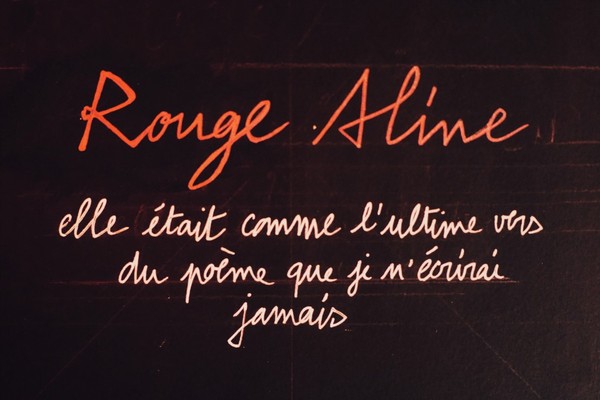 Rouge Aline
elle était comme l'ultime vers
du poème que je n'écrirai
jamais